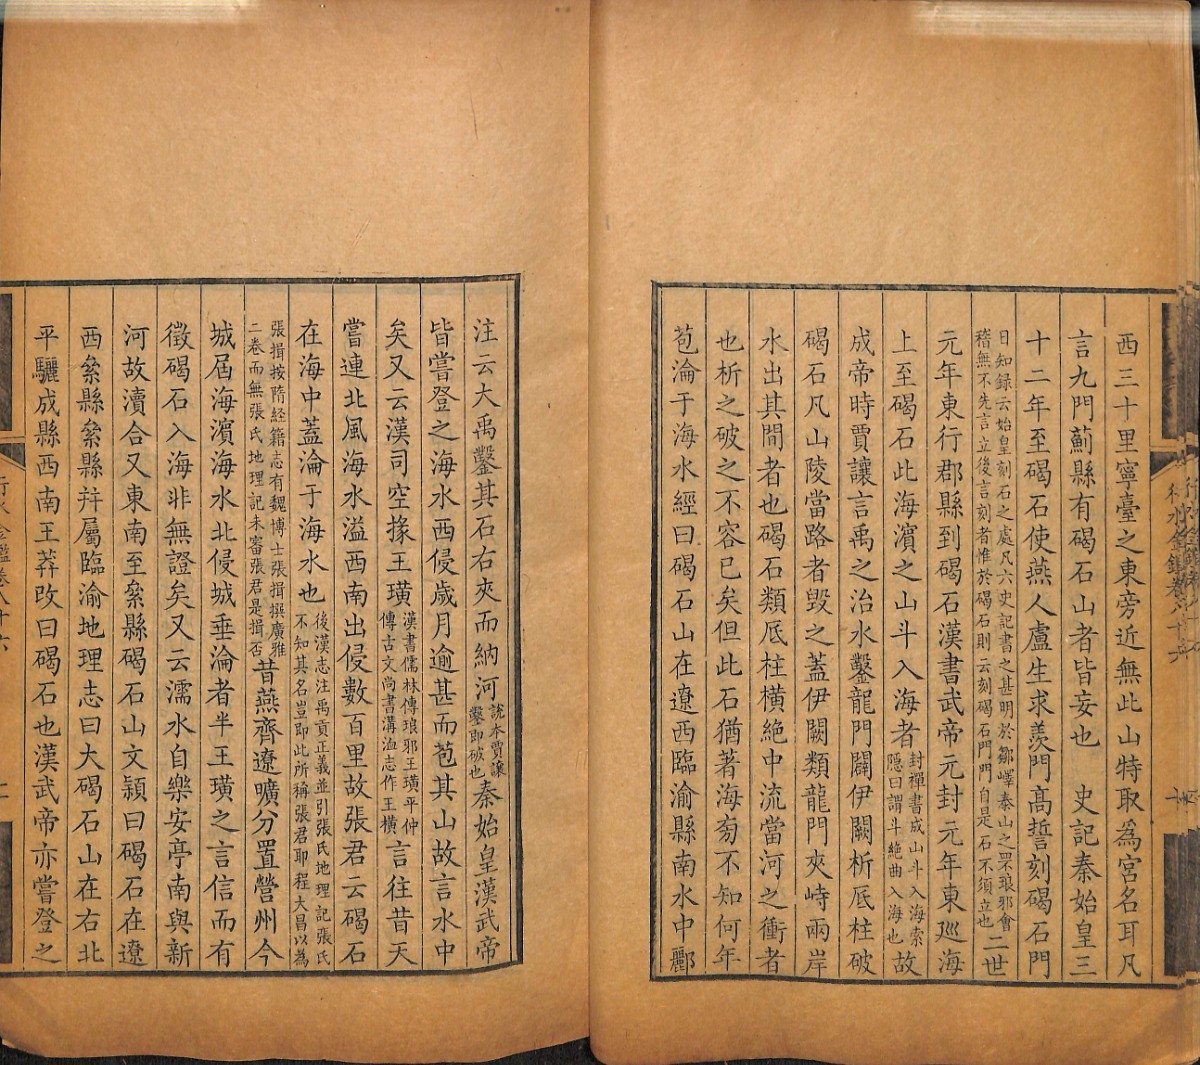 西三十里寧臺之東旁近無此山特取為宮名耳凡
言九門薊縣有碣石山者皆妄也 史記秦始皇三
十二年至碣石使燕人盧生求羨門高誓刻碣石門
日知録云始皇刻石之處凡六史記書之甚明於鄒嶧泰山之罘琅邪會
稽無不先言立後言刻者惟於碣石則云刻碣石門門自是石不須立也二世
元年東行郡縣到碣石漢書武帝元封元年東巡海
上至碣石此海濱之山斗入海者封禪書成山斗入海索
隱曰謂斗絶曲入海也故
成帝時賈讓言禹之治水鑿龍門闢伊闕析底柱破
碣石凡山陵當路者毀之蓋伊闕類龍門夾峙兩岸
水出其間者也碣石類底柱橫絶中流當河之衝者
也析之破之不容已矣但此石猶著海旁不知何年
苞淪于海水經曰碣石山在遼西臨渝縣南水中酈
注云大禹鑿其石右夾而納河說本賈讓
鑿即破也秦始皇漢武帝
皆嘗登之海水西侵歲月逾甚而苞其山故言水中
矣又云漢司空掾王璜漢書儒林傳琅邪王璜平仲
傳古文尚書溝洫志作王橫言往昔天
嘗連北風海水溢西南出侵數百里故張君云碣石
在海中蓋淪于海水也後漢志注禹貢正義並引張氏地理記張氏
不知其名豈即此所稱張君耶程大昌以為
張揖按隋經籍志有魏博士張揖撰廣雅
二卷而無張氏地理記未審張君是揖否昔燕齊遼曠分置營州今
城屆海濱海水北侵城垂淪者半王璜之言信而有
徵碣石入海非無證矣又云濡水自樂安亭南與新
河故瀆合又東南至絫縣碣石山文潁曰碣石在遼
西絫縣絫縣并屬臨渝地理志曰大碣石山在右北
平驪成縣西南王莽改曰碣石也漢武帝亦嘗登之
行水金鑑卷八十六